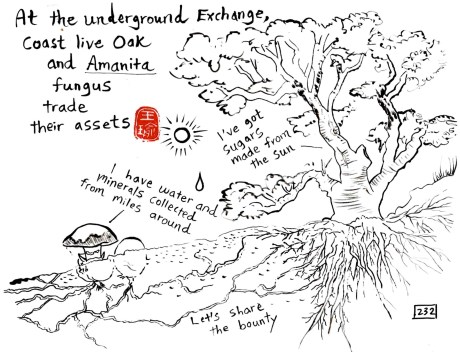 At the underground Exchange,
Coast live Oak
and Amanita
fungus
trade
their assets
I've got
sugars
made from
the sun
I have water and
minerals collected
from miles around
Let's share
the bounty
232